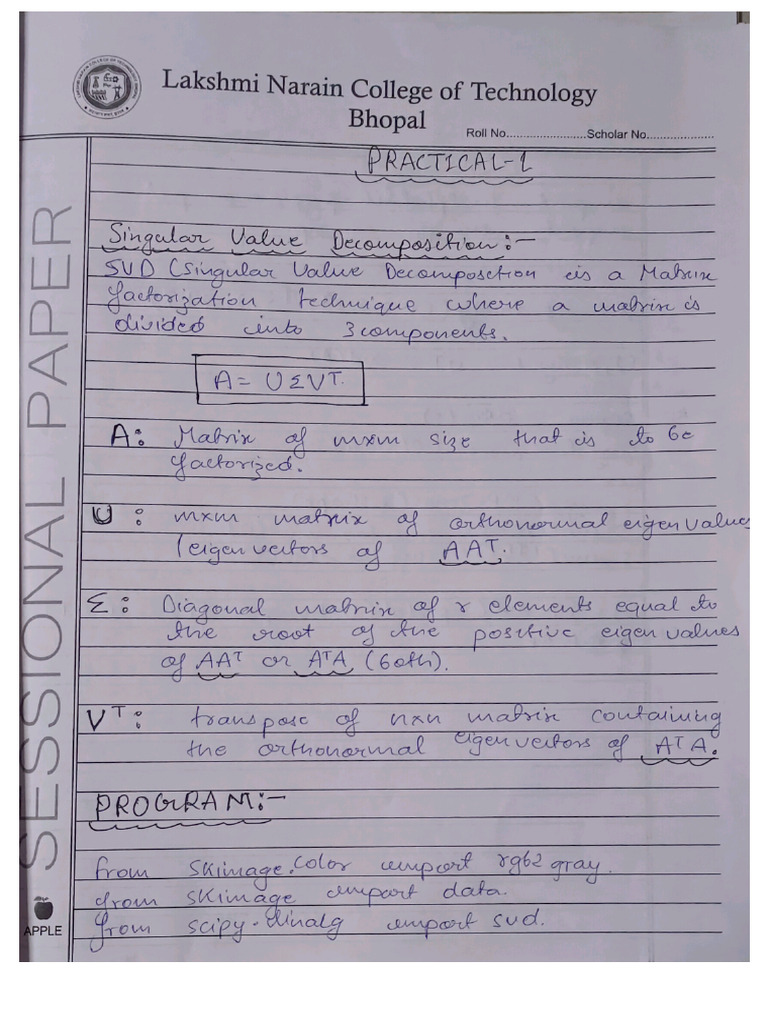 Lakshmi Narain College of Technology
Bhopal
Roll No........................Scholar No....................
PRACTICAL-1
Singular Value Decomposition:-
SVD (Singular Value Decomposition is a Matrix
factorization technique where a matrix is
divided into 3 components.
A = UΣVT.
A: Matrix of mxm size that is to be
factorized.
U: mxm matrix of orthonormal eigen values
/eigen vectors of AAT.
Σ: Diagonal matrix of r elements equal to
the root of the positive eigen values
of AAᵀ or AᵀA (both).
Vᵀ: transpose of nxn matrix containing
the orthonormal eigen vectors of AᵀA.
PROGRAM:-
from skimage.color import rgb2gray.
from skimage import data.
from scipy.linalg import svd.
SESSIONAL PAPER
APPLE